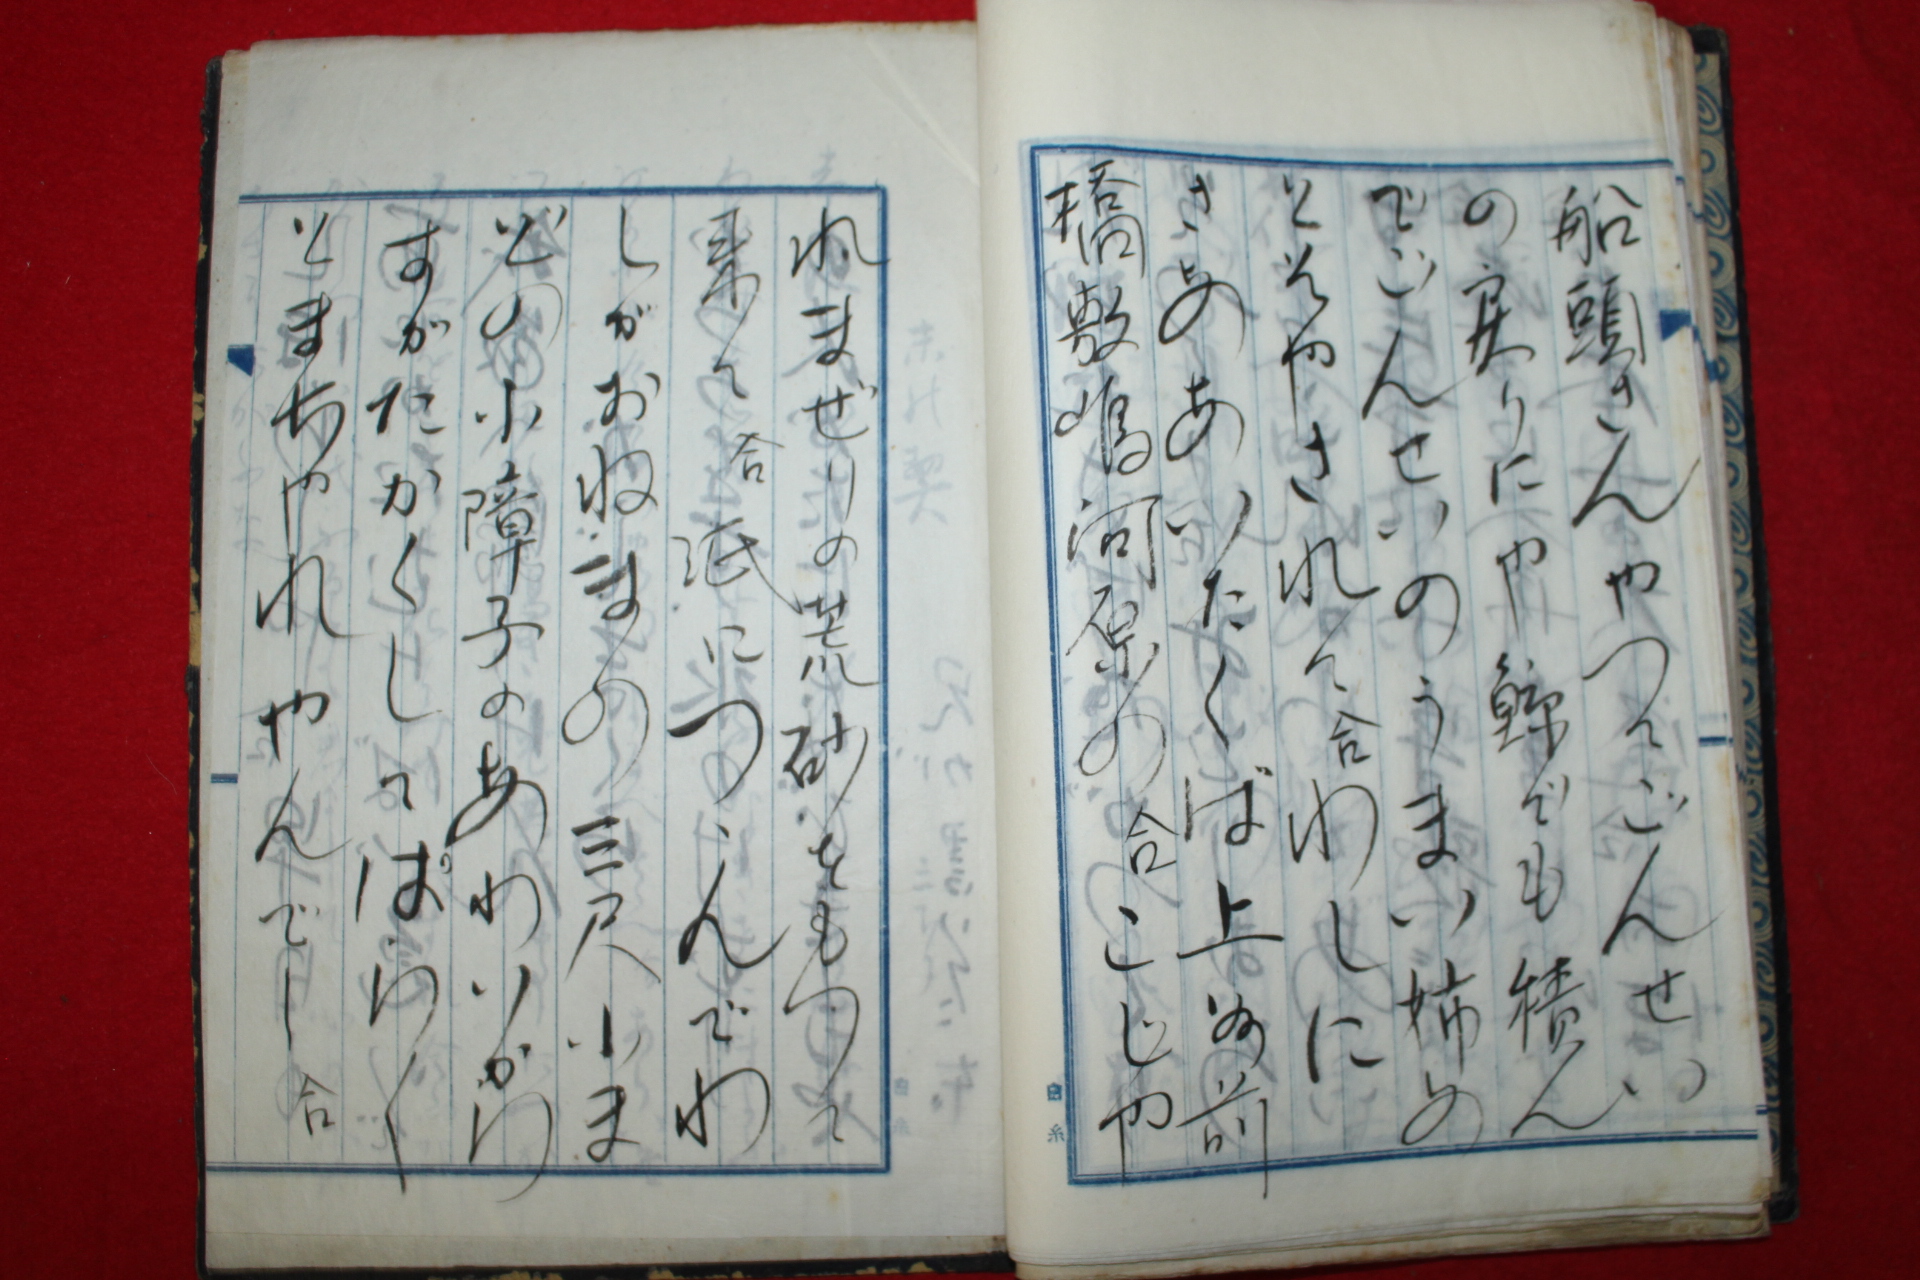 船頭さんやつてごんせい
の戻りにや鯨でも積ん
でごんせいのうまい姉め
とはやされて合わしに
さああいたくば上る前
橋敷嶋河原の合こじや
れまぜりの荒砂をもつて
来て合
につゝんでわ
しがおねまの三尺小ま
どの小障子のあわいから
すがたかくしてぱらく
とまちやれやんでー合